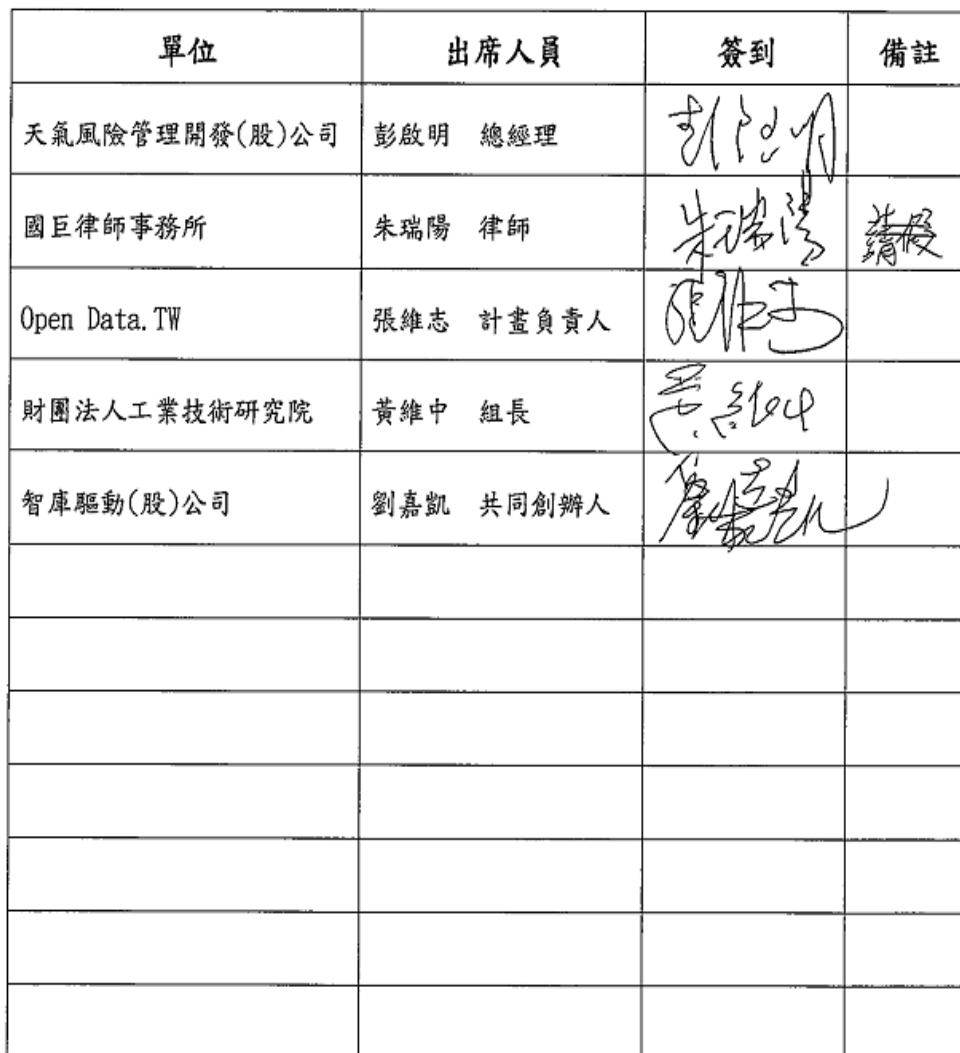 單位 出席人員 簽到 備註
天氣風險管理開發(股)公司 彭啟明 總經理 彭啟明
國巨律師事務所 朱瑞陽 律師 朱瑞陽 請假
Open Data.TW 張維志 計畫負責人 張維志
財團法人工業技術研究院 黃維中 組長 黃維中
智庫驅動(股)公司 劉嘉凱 共同創辦人 劉嘉凱